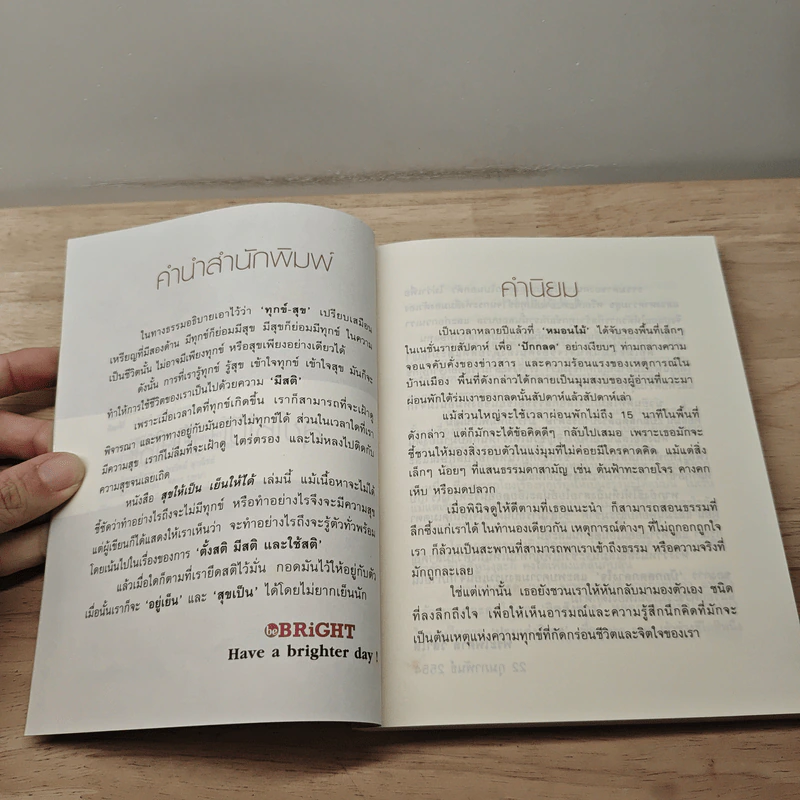 คำนำสำนักพิมพ์
ในทางธรรมอธิบายเอาไว้ว่า 'ทุกข์-สุข' เปรียบเสมือน
เหรียญที่มีสองด้าน มีทุกข์ก็ย่อมมีสุข มีสุขก็ย่อมมีทุกข์ ในความ
เป็นชีวิตนั้น ไม่อาจมีเพียงทุกข์ หรือสุขเพียงอย่างเดียวได้
ดังนั้น การที่เรารู้ทุกข์ รู้สุข เข้าใจทุกข์ เข้าใจสุข มันก็จะ
ทำให้การใช้ชีวิตของเราเป็นไปด้วยความ 'มีสติ'
เพราะเมื่อเวลาใดที่ทุกข์เกิดขึ้น เราก็สามารถที่จะเฝ้าดู
พิจารณา และหาทางอยู่กับมันอย่างไม่ทุกข์ได้ ส่วนในเวลาใดที่เรา
มีความสุข เราก็ไม่ลืมที่จะเฝ้าดู ไตร่ตรอง และไม่หลงไปติดกับ
ความสุขจนเลยเถิด
หนังสือ สุขให้เป็น เย็นให้ได้ เล่มนี้ แม้เนื้อหาจะไม่ได้
ชี้ชัดว่าทำอย่างไรถึงจะไม่มีทุกข์ หรือทำอย่างไรจึงจะมีความสุข
แต่ผู้เขียนก็ได้แสดงให้เราเห็นว่า จะทำอย่างไรถึงจะรู้ตัวทั่วพร้อม
โดยเน้นไปในเรื่องของการ 'ตั้งสติ มีสติ และใช้สติ'
แล้วเมื่อใดก็ตามที่เรายึดสติไว้มั่น กอดมันไว้ให้อยู่กับตัว
เมื่อนั้นเราก็จะ 'อยู่เย็น' และ 'สุขเป็น' ได้โดยไม่ยากเย็นนัก
beBRiGHT
Have a brighter day !
คำนิยม
เป็นเวลาหลายปีแล้วที่ 'หมอนไม้' ได้จับจองพื้นที่เล็กๆ
ในเนชั่นรายสัปดาห์ เพื่อ 'ปักกลด' อย่างเงียบๆ ท่ามกลางความ
จอแจคับคั่งของข่าวสาร และความร้อนแรงของเหตุการณ์ใน
บ้านเมือง พื้นที่ดังกล่าวได้กลายเป็นมุมสงบของผู้อ่านที่แวะมา
ผ่อนพักใต้ร่มเงาของกลดนั้นสัปดาห์แล้วสัปดาห์เล่า
แม้ส่วนใหญ่จะใช้เวลาผ่อนพักไม่ถึง 15 นาทีในพื้นที่
ดังกล่าว แต่ก็มักจะได้ข้อคิดดีๆ กลับไปเสมอ เพราะเธอมักจะ
ชี้ชวนให้มองสิ่งรอบตัวในแง่มุมที่ไม่ค่อยมีใครคาดคิด แม้แต่สิ่ง
เล็กๆ น้อยๆ ที่แสนธรรมดาสามัญ เช่น ต้นฟ้าทะลายโจร คางคก
เห็บ หรือมดปลวก
เมื่อพินิจดูให้ดีตามที่เธอแนะนำ ก็สามารถสอนธรรมที่
ลึกซึ้งแก่เราได้ ในทำนองเดียวกัน เหตุการณ์ต่างๆ ที่ไม่ถูกอกถูกใจ
เรา ก็ล้วนเป็นสะพานที่สามารถพาเราเข้าถึงธรรม หรือความจริงที่
มักถูกละเลย
ใช่แต่เท่านั้น เธอยังชวนเราให้หันกลับมามองตัวเอง ชนิด
ที่ลงลึกถึงใจ เพื่อให้เห็นอารมณ์และความรู้สึกนึกคิดที่มักจะ
เป็นต้นเหตุแห่งความทุกข์ที่กัดกร่อนชีวิตและจิตใจของเรา